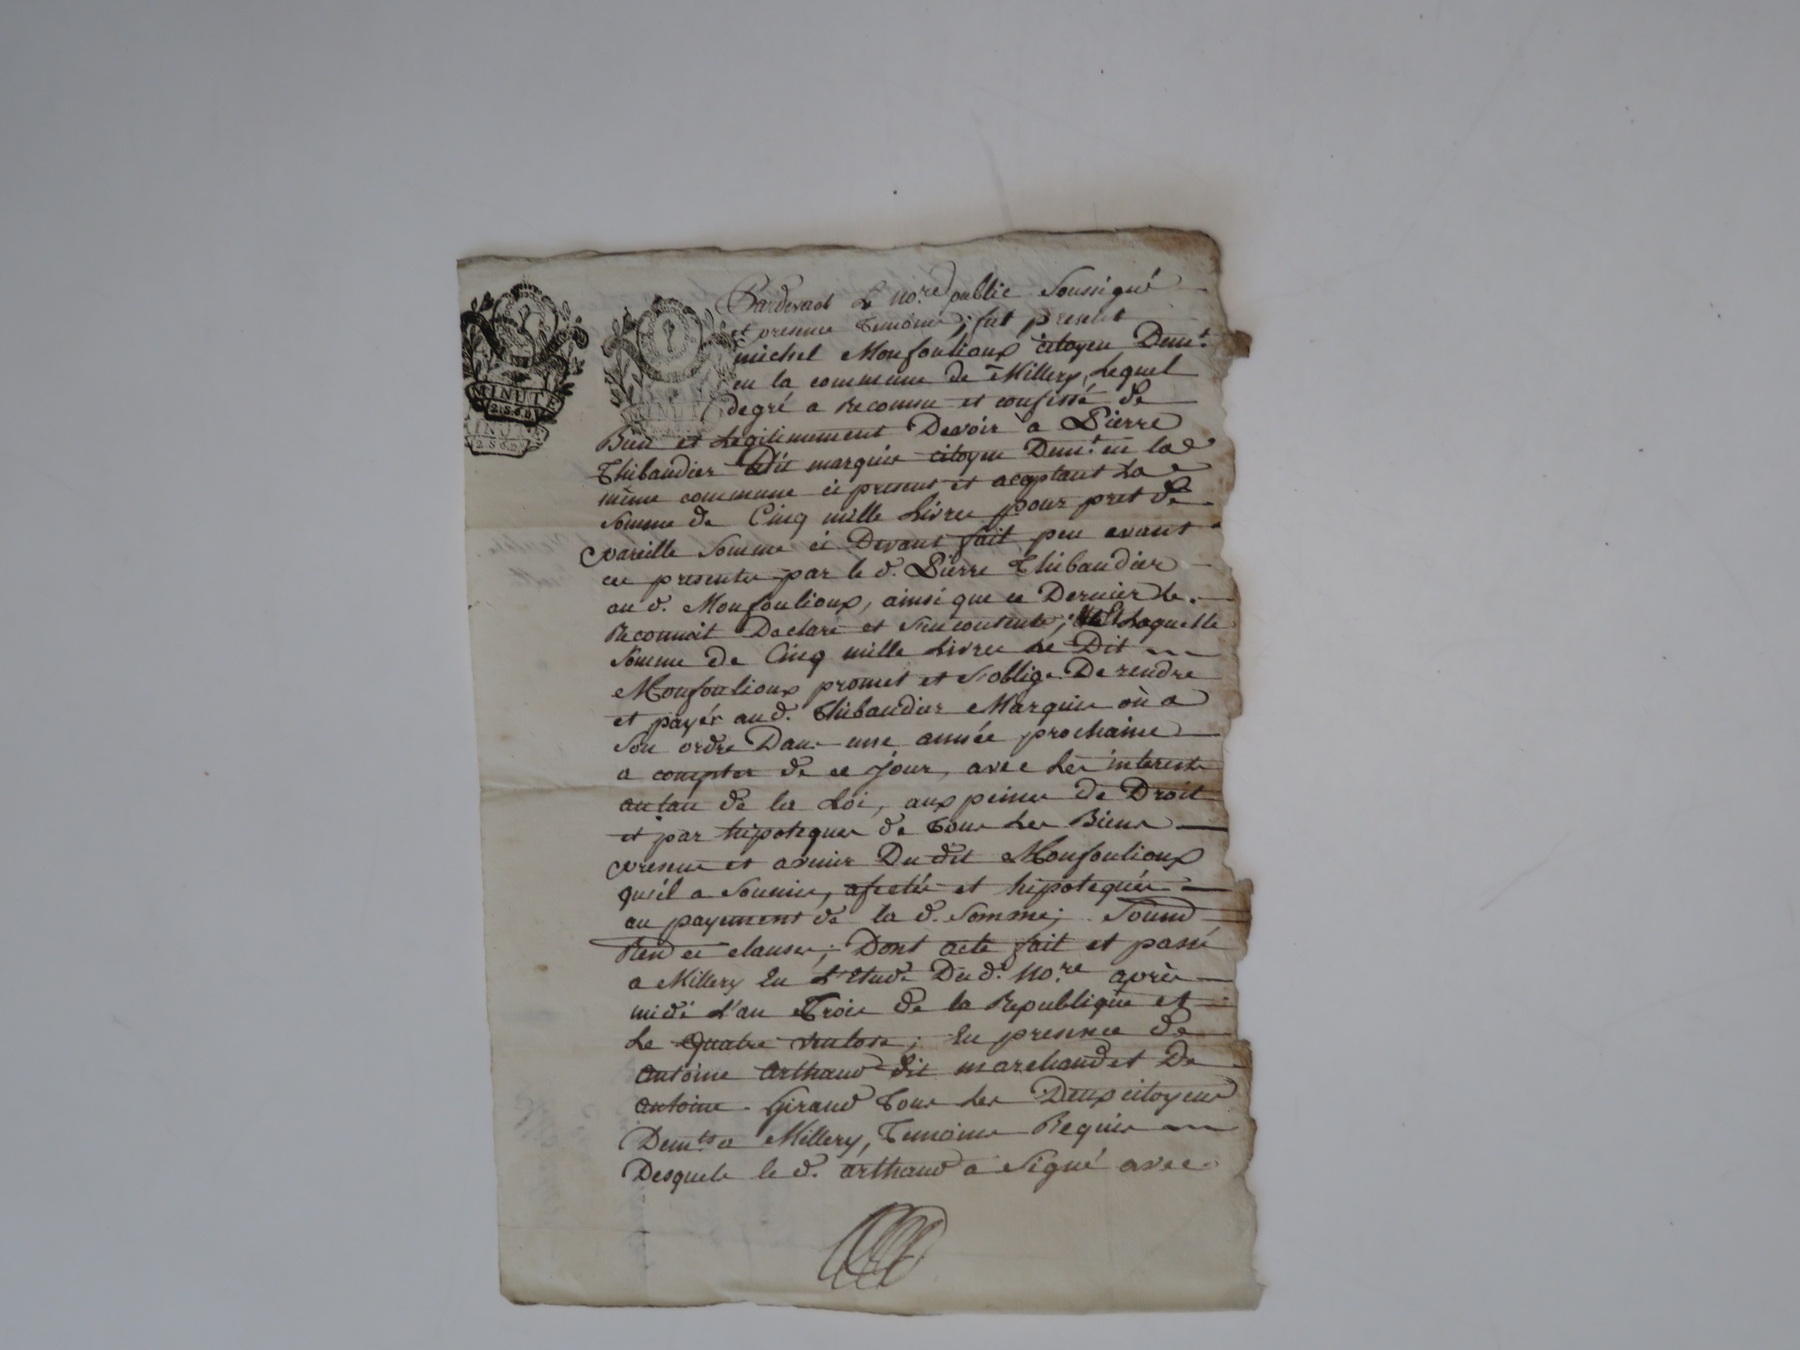 MINUTE
2.S.6.D
MINUTE
2.S.6.D
MINUTE
Pardevant le no.re public Soussigné
et presence temoins; fut present
michel Monfoulloux citoyen Dem.t
en la commune de Millery, Lequel
degré a Reconnu et confissé de
Bien et Legitimement Devoir a Pierre
Thibaudier dit marquis citoyen Dem.t en la
même commune ci present et aceptant La
somme de Cinq mille Livres pour pret de
pareille somme ci Devant fait peu avant
ces presentes par le d. Pierre Thibaudier
au d. Monfoulioux, ainsi que ce Dernier le
Reconnoit Declare et s'en contente; Laquelle
somme de Cinq mille Livres Le Dit
Monfoulioux promet et s'oblige De rendre
et payér au d. Thibaudier Marquis où a
son ordre Dans une année prochaine
a compter de ce jour, avec Les interest
au tau de la Loi, aux peines de Droit
et par hipoteques de tous Les Biens
presens et avenir Du dit Monfoulioux
qu'il a soumis, afectés et hipotequés
au payement de la d. somme;
Ren et clauses; Dont acte fait et passé
a Millery En L'Etude Du d. no.re après
midi L'an Trois de la Republique et
Le quatre ventose; En presence de
antoine arthaud dit marchand et De
antoine Giraud tous Les Deux citoyens
Dem.ts a Millery, Temoins Requis
Desquels le d. arthaud a signé avec